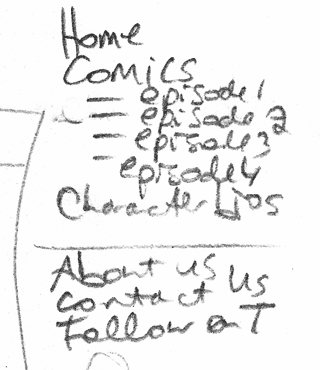 Home
Comics
— episode 1
— episode 2
— episode 3
- episode 4
Character bios
About us
Contact us
Follow on T